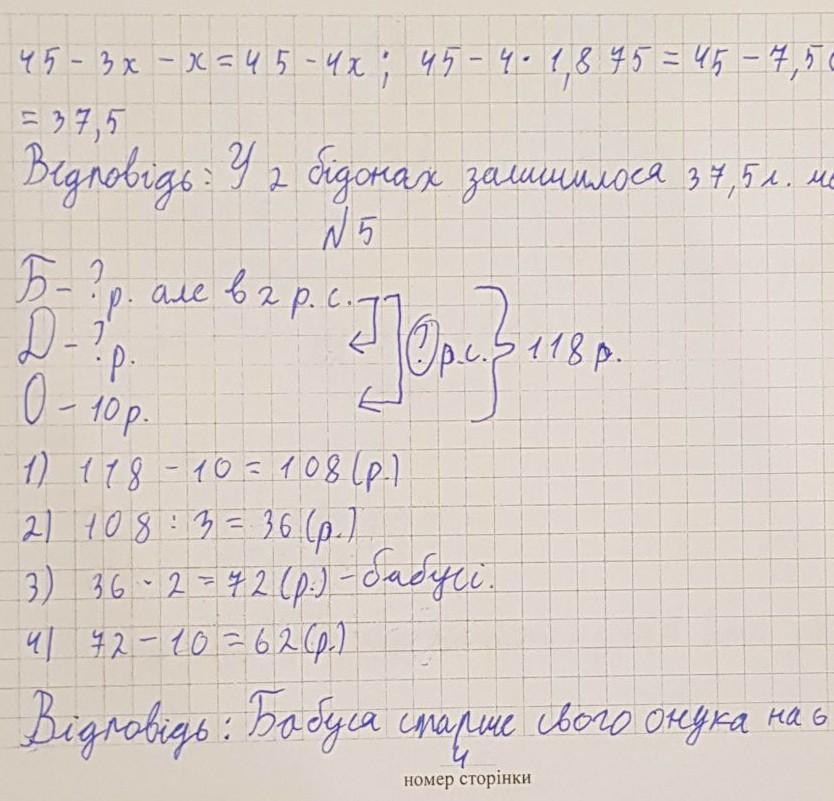 45 - 3x - x = 45 - 4x ; 45 - 4 · 1,875 = 45 - 7,5
= 37,5
Відповідь: У 2 бідонах залишилося 37,5 л.
№ 5
Б - ? р. але в 2 р. с.
Д - ? р. ? р.с. 118 р.
О - 10 р.
1) 118 - 10 = 108 (р.)
2) 108 : 3 = 36 (р.)
3) 36 · 2 = 72 (р.) - бабусі.
4) 72 - 10 = 62 (р.)
Відповідь: Бабуся старше свого онука на 6
4
номер сторінки